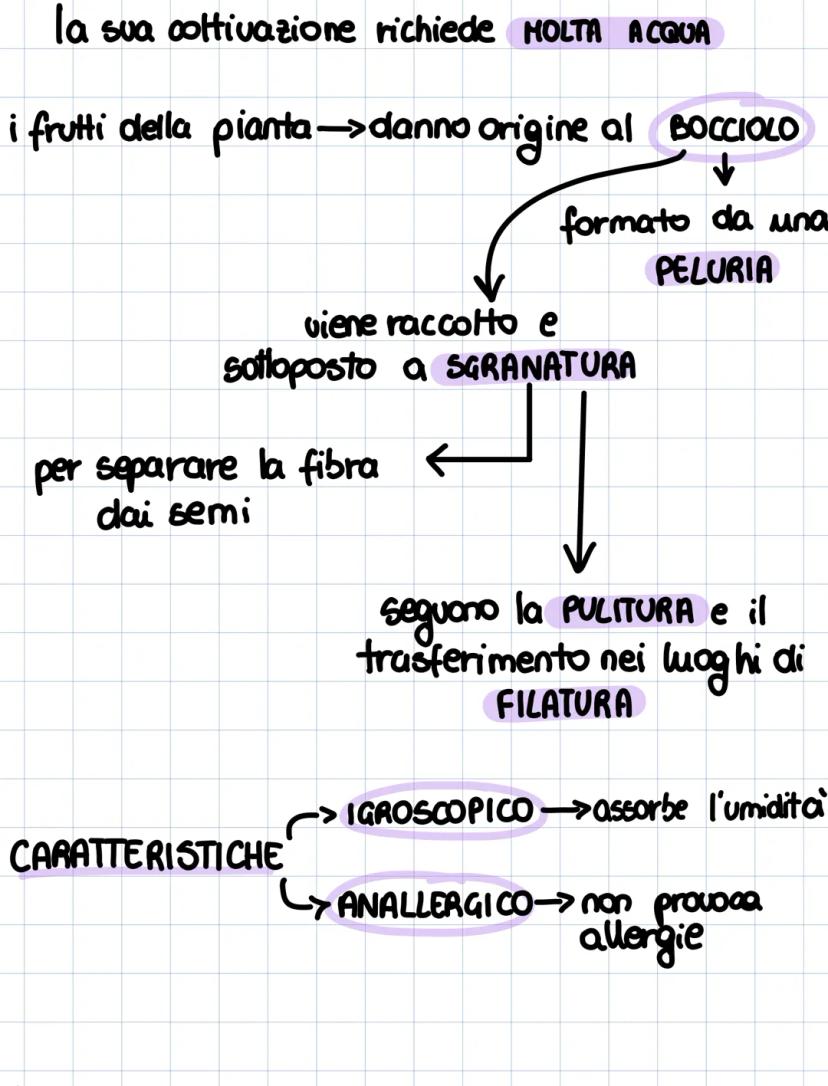 la sua coltivazione richiede MOLTA ACQUA
i frutti della pianta → danno origine al BOCCIOLO
formato da una
PELURIA
viene raccolto e
sottoposto a SGRANATURA
per separare la fibra
dai semi
seguono la PULITURA e il
trasferimento nei luoghi di
FILATURA
IGROSCOPICO → assorbe l'umidità
CARATTERISTICHE
ANALLERGICO → non provoca
allergie